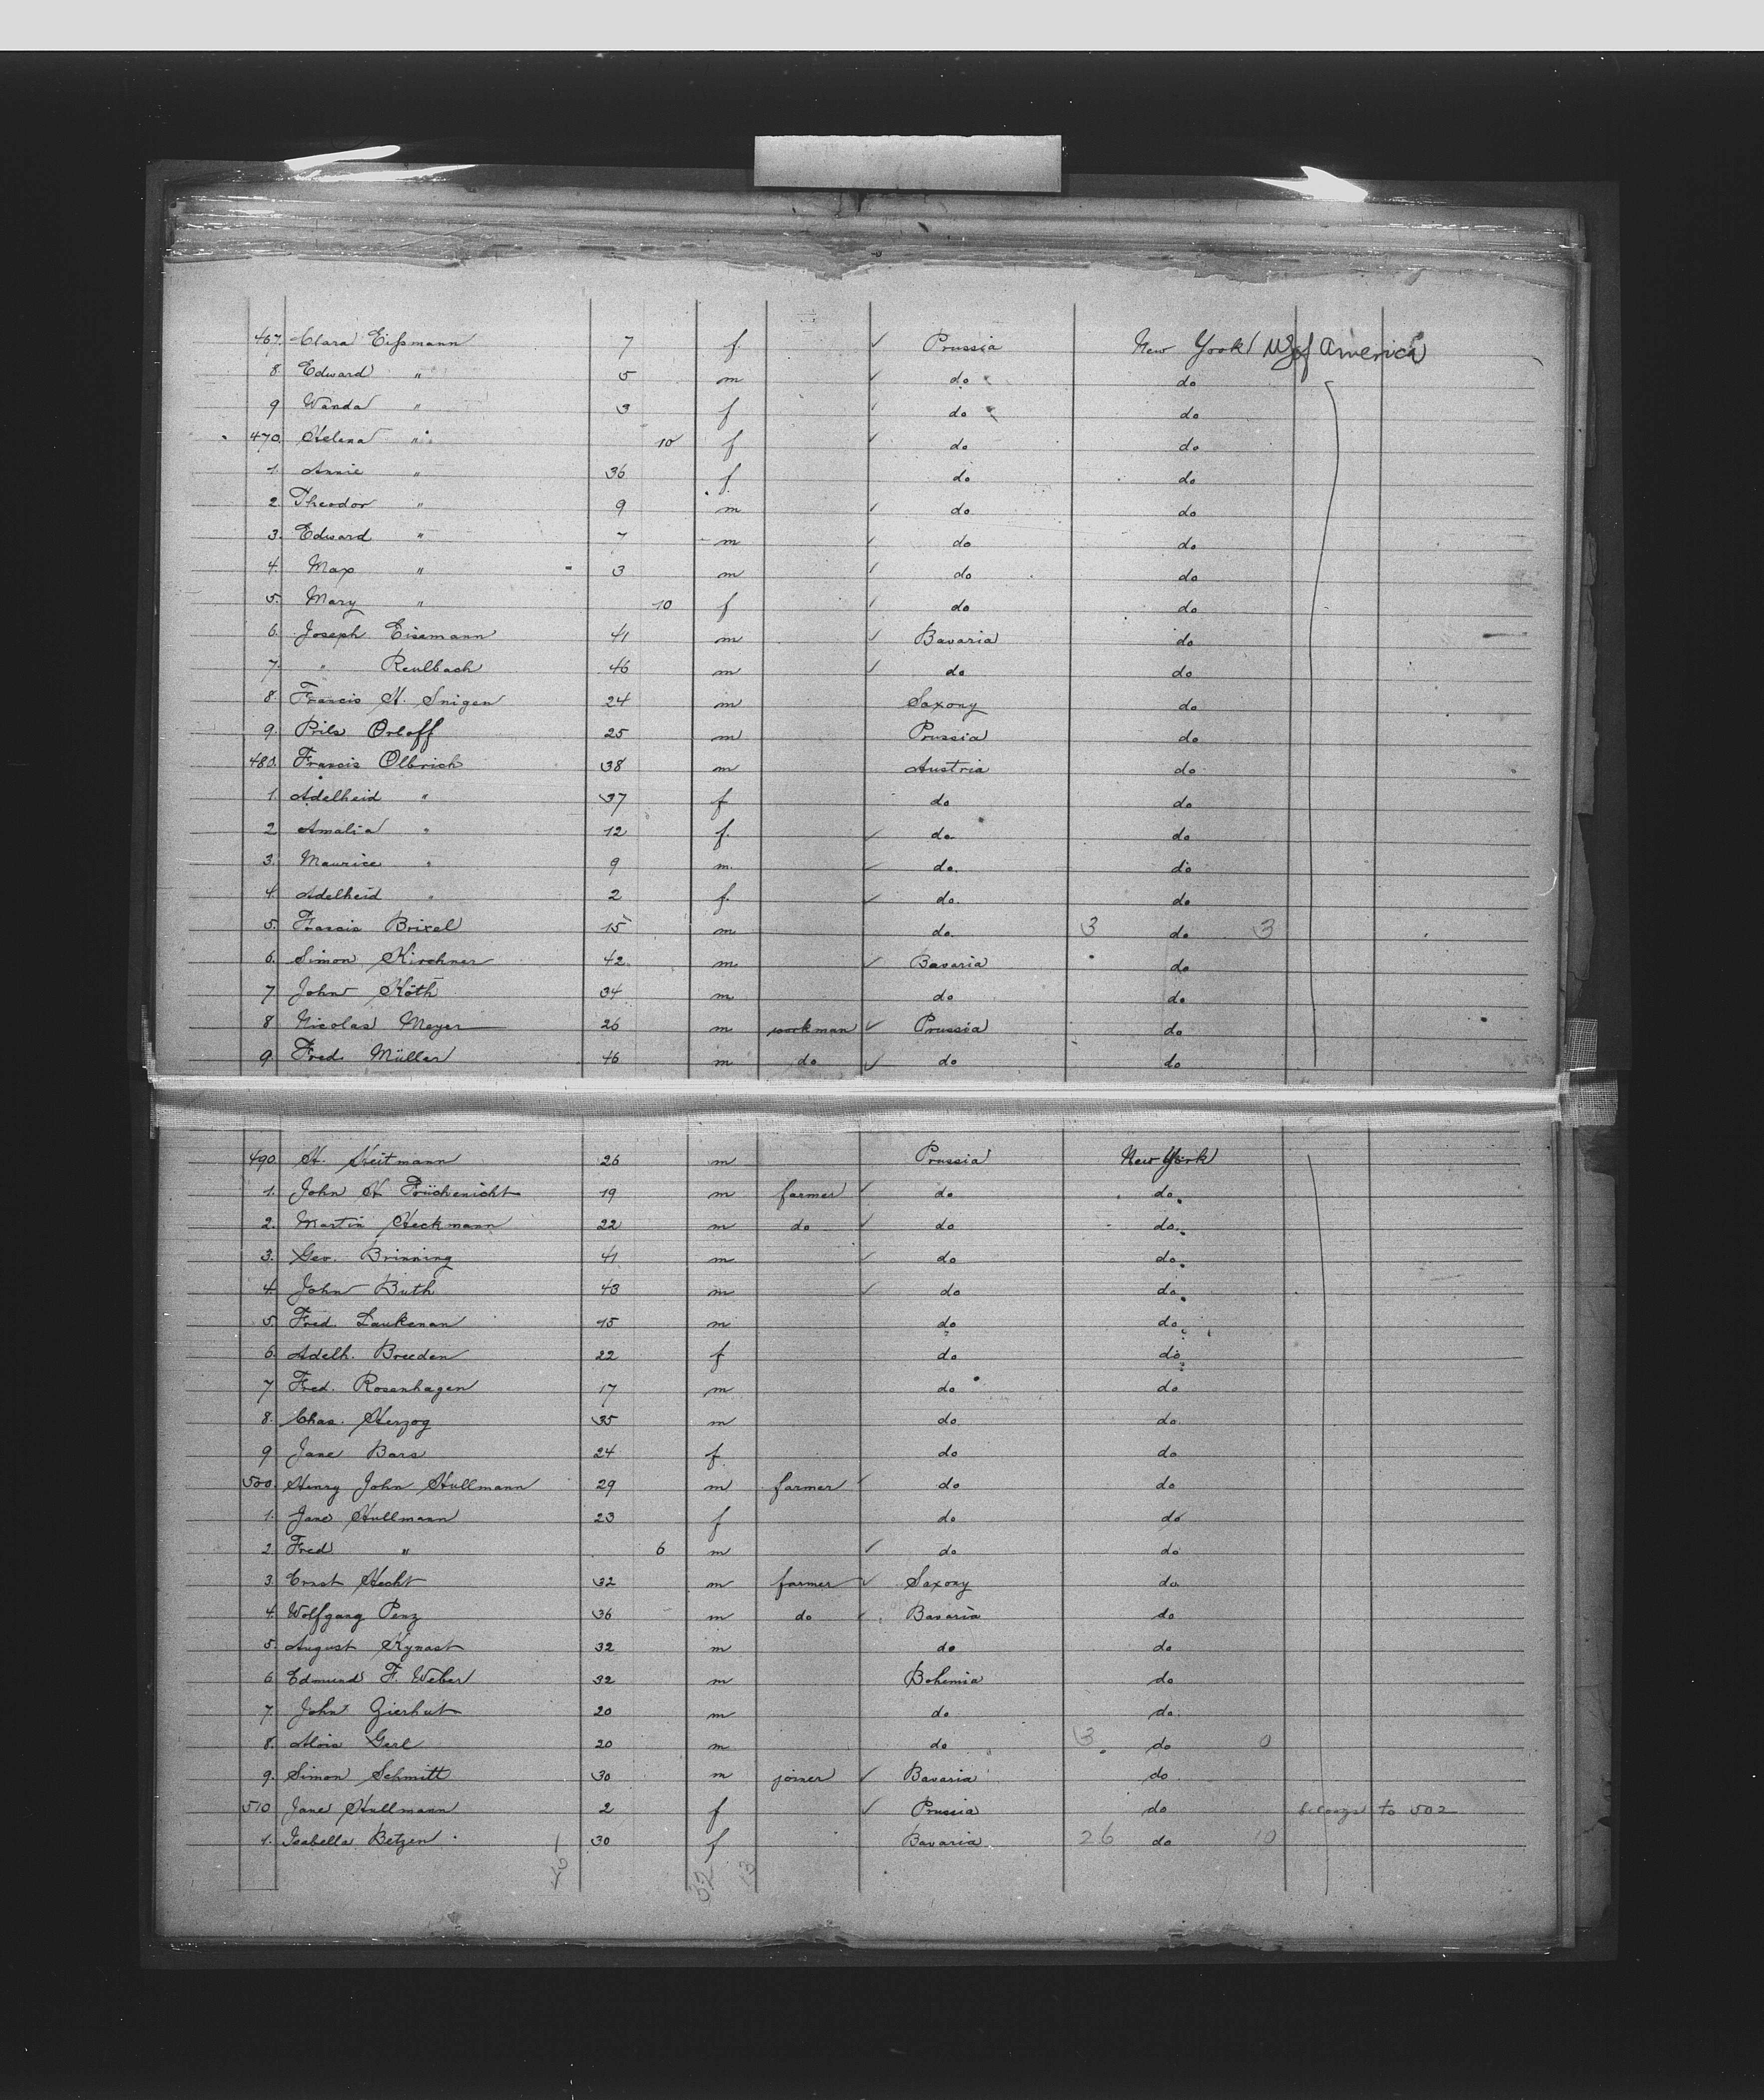 467. Clara Eißmann 7 f ✓ Prussia New York / US of America
8 Edward " 5 m ✓ do do
9 Wanda " 3 f ✓ do do
470. Helena " 10 f ✓ do do
1. Annie " 36 f do do
2. Theodor " 9 m ✓ do do
3. Edward " 7 m ✓ do do
4. Max " 3 m ✓ do do
5. Mary " 10 f ✓ do do
6. Joseph Eisemann 41 m ✓ Bavaria do
7. " Reulbach 46 m ✓ do do
8. Francis H. Snigen 24 m Saxony do
9. Orloff 25 m Prussia do
480. Francis Olbrich 38 m Austria do
1. Adelheid " 37 f do do
2 Amalia " 12 f. ✓ do do
3. Maurice " 9 m. ✓ do. do
4. Adelheid " 2 f. ✓ do. do
5. Francis Brixel 15 m do. 3 do 3
6. Simon Kirchner 42. m ✓ Bavaria do
7 John Köth 34 m do do
8 Nicolas Meyer 26 m workman ✓ Prussia do
9. Fred. Müller 46 m do ✓ do do
490 H. Heitmann 26 m Prussia New York
1. John H Früchenicht 19 m farmer ✓ do do
2. Martin Heckmann 22 m do ✓ do do.
3. Geo. Brinning 41 m ✓ do do
4. John Buth 43 m ✓ do do
5. Fred. Laukenan 15 m do do
6. Adelh. Breeden 22 f do do
7 Fred. Rosenhagen 17 m do do
8. Chas. Herzog 35 m do do
9 Jane Bars 24 f do do
500. Henry John Hullmann 29 m farmer ✓ do do
1. Jane Hullmann 23 f do do
2 Fred " 6 m ✓ do do
3. Ernst Hecht 32 m farmer ✓ Saxony do
4. Wolfgang Penz 36 m do ✓ Bavaria do
5. August Kynast 32 m do do
6 Edmund F. Weber 32 m Bohemia do
7. John Zierhut 20 m do do
8. Alois Gerl 20 m do 3 do 0
9. Simon Schmitt 30 m joiner ✓ Bavaria do
510 Jane Hullmann 2 f ✓ Prussia do belongs to 502
1. Isabella Betzen 30 f Bavaria 26 do 10
32 13